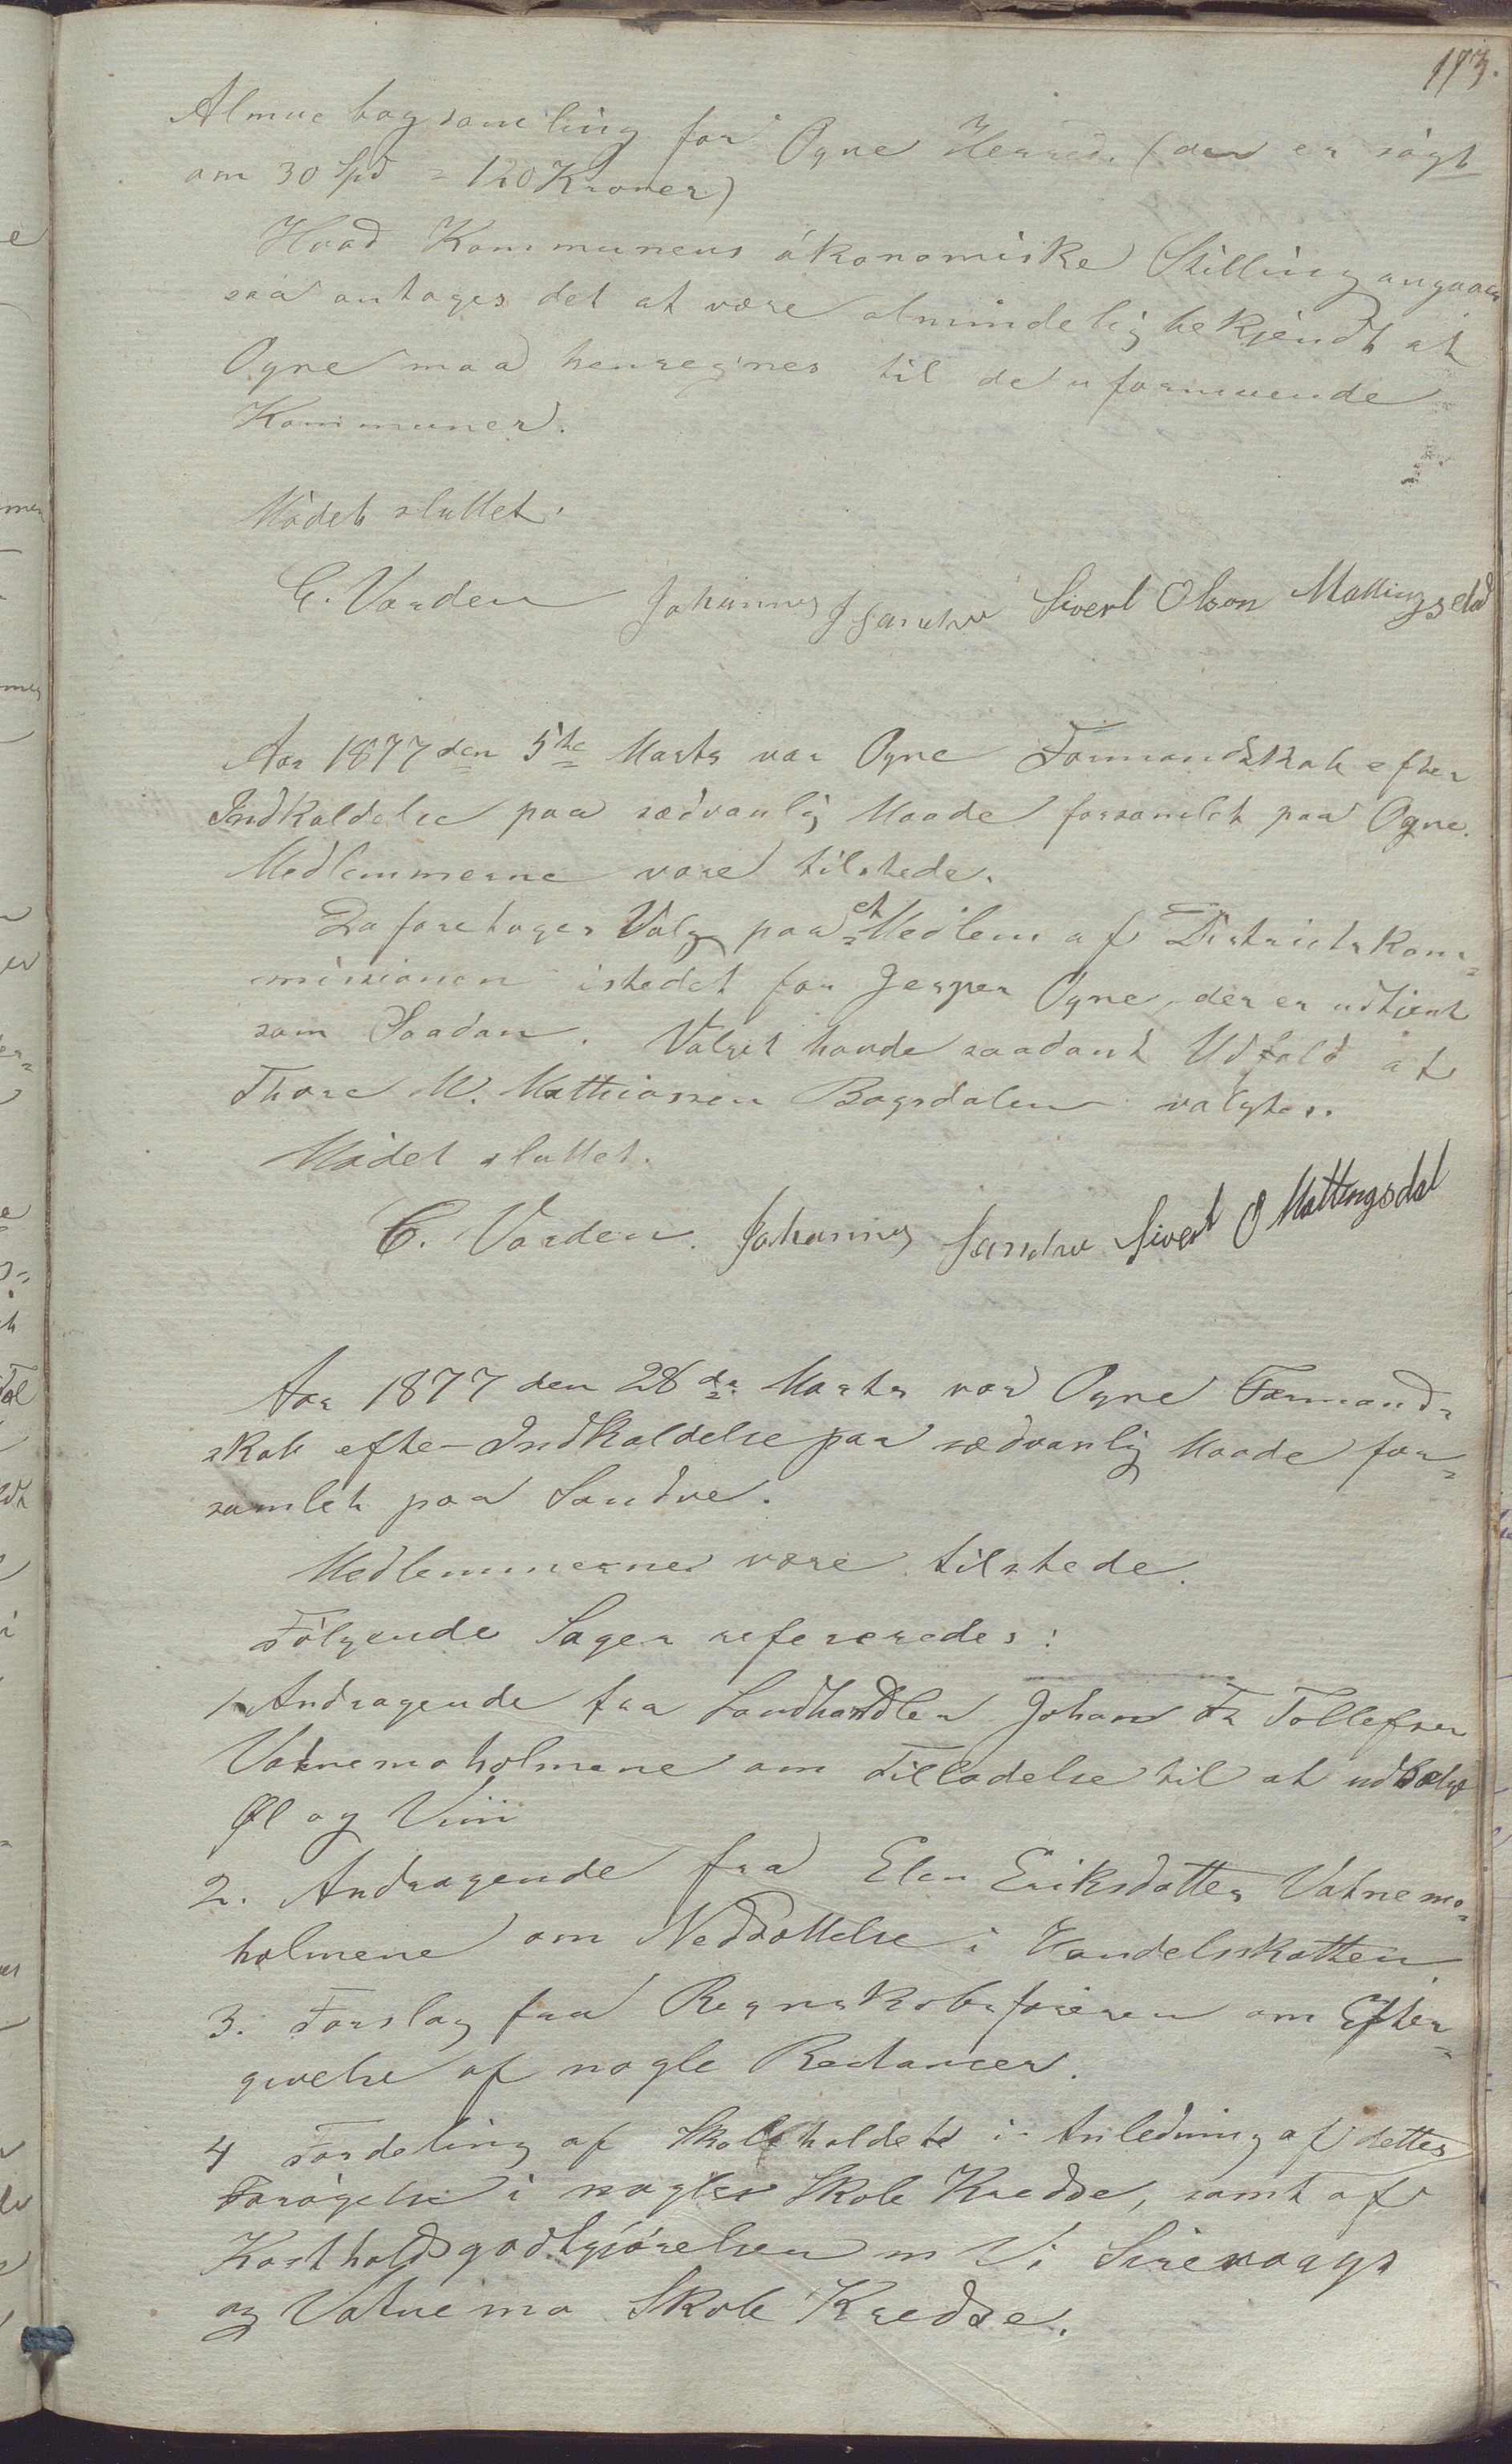 173.
Almuebogsamling for Ogne Herred. (der er søgt
om 30 Spd = 120 Kroner)
Hvad Kommunens økonomiske Stilling angaaer
saa antages det at være almindelig bekjendt at
Ogne maa henregnes til de uformuende
Kommuner.
Mødet sluttet.
C. Varden Johannes J Sandve Sivert Olson Mattingsdal
Aar 1877 den 5te Marts var Ogne Formandskab efter
Indkaldelse paa sædvanlig Maade forsamlet paa Ogne.
Medlemmerne vare tilstede.
Da foretages Valg paa et Medlem af Districtskom=
missionen istedet for Jesper Ogne, der er udtjent
som Saadan. Valget havde saadant Udfald at
Thore M. Mathiassen Bogsdalen valgtes.
Mødet sluttet.
C. Varden. Johannes Sandve Sivert O Mattingsdal
Aar 1877 den 28de Marts var Ogne Formand=
skab efter Indkaldelse paa sædvanlig Maade for=
samlet paa Sandve.
Medlemmerne vare tilstede.
Følgende Sager refereredes:
1. Andragende fra Landhandler Johan Fr Tollefsen
Vatnemoholmene om Tilladelse til at udsælge
Øl og Viin
2. Andragende fra Elen Eriksdatter Vatnemo=
holmene om Nedsættelse i Handelsskatten.
3. Forslag fra Regnskabsføreren om Efter=
givelse af nogle Restancer.
4 Fordeling af Skoleholdet i Anledning af dettes
Forøgelse i nogle Skole Kredse, samt af
Kostholdsgodtgjørelsen m V i Sirevaags
og Vatnemo Skole Kredse.